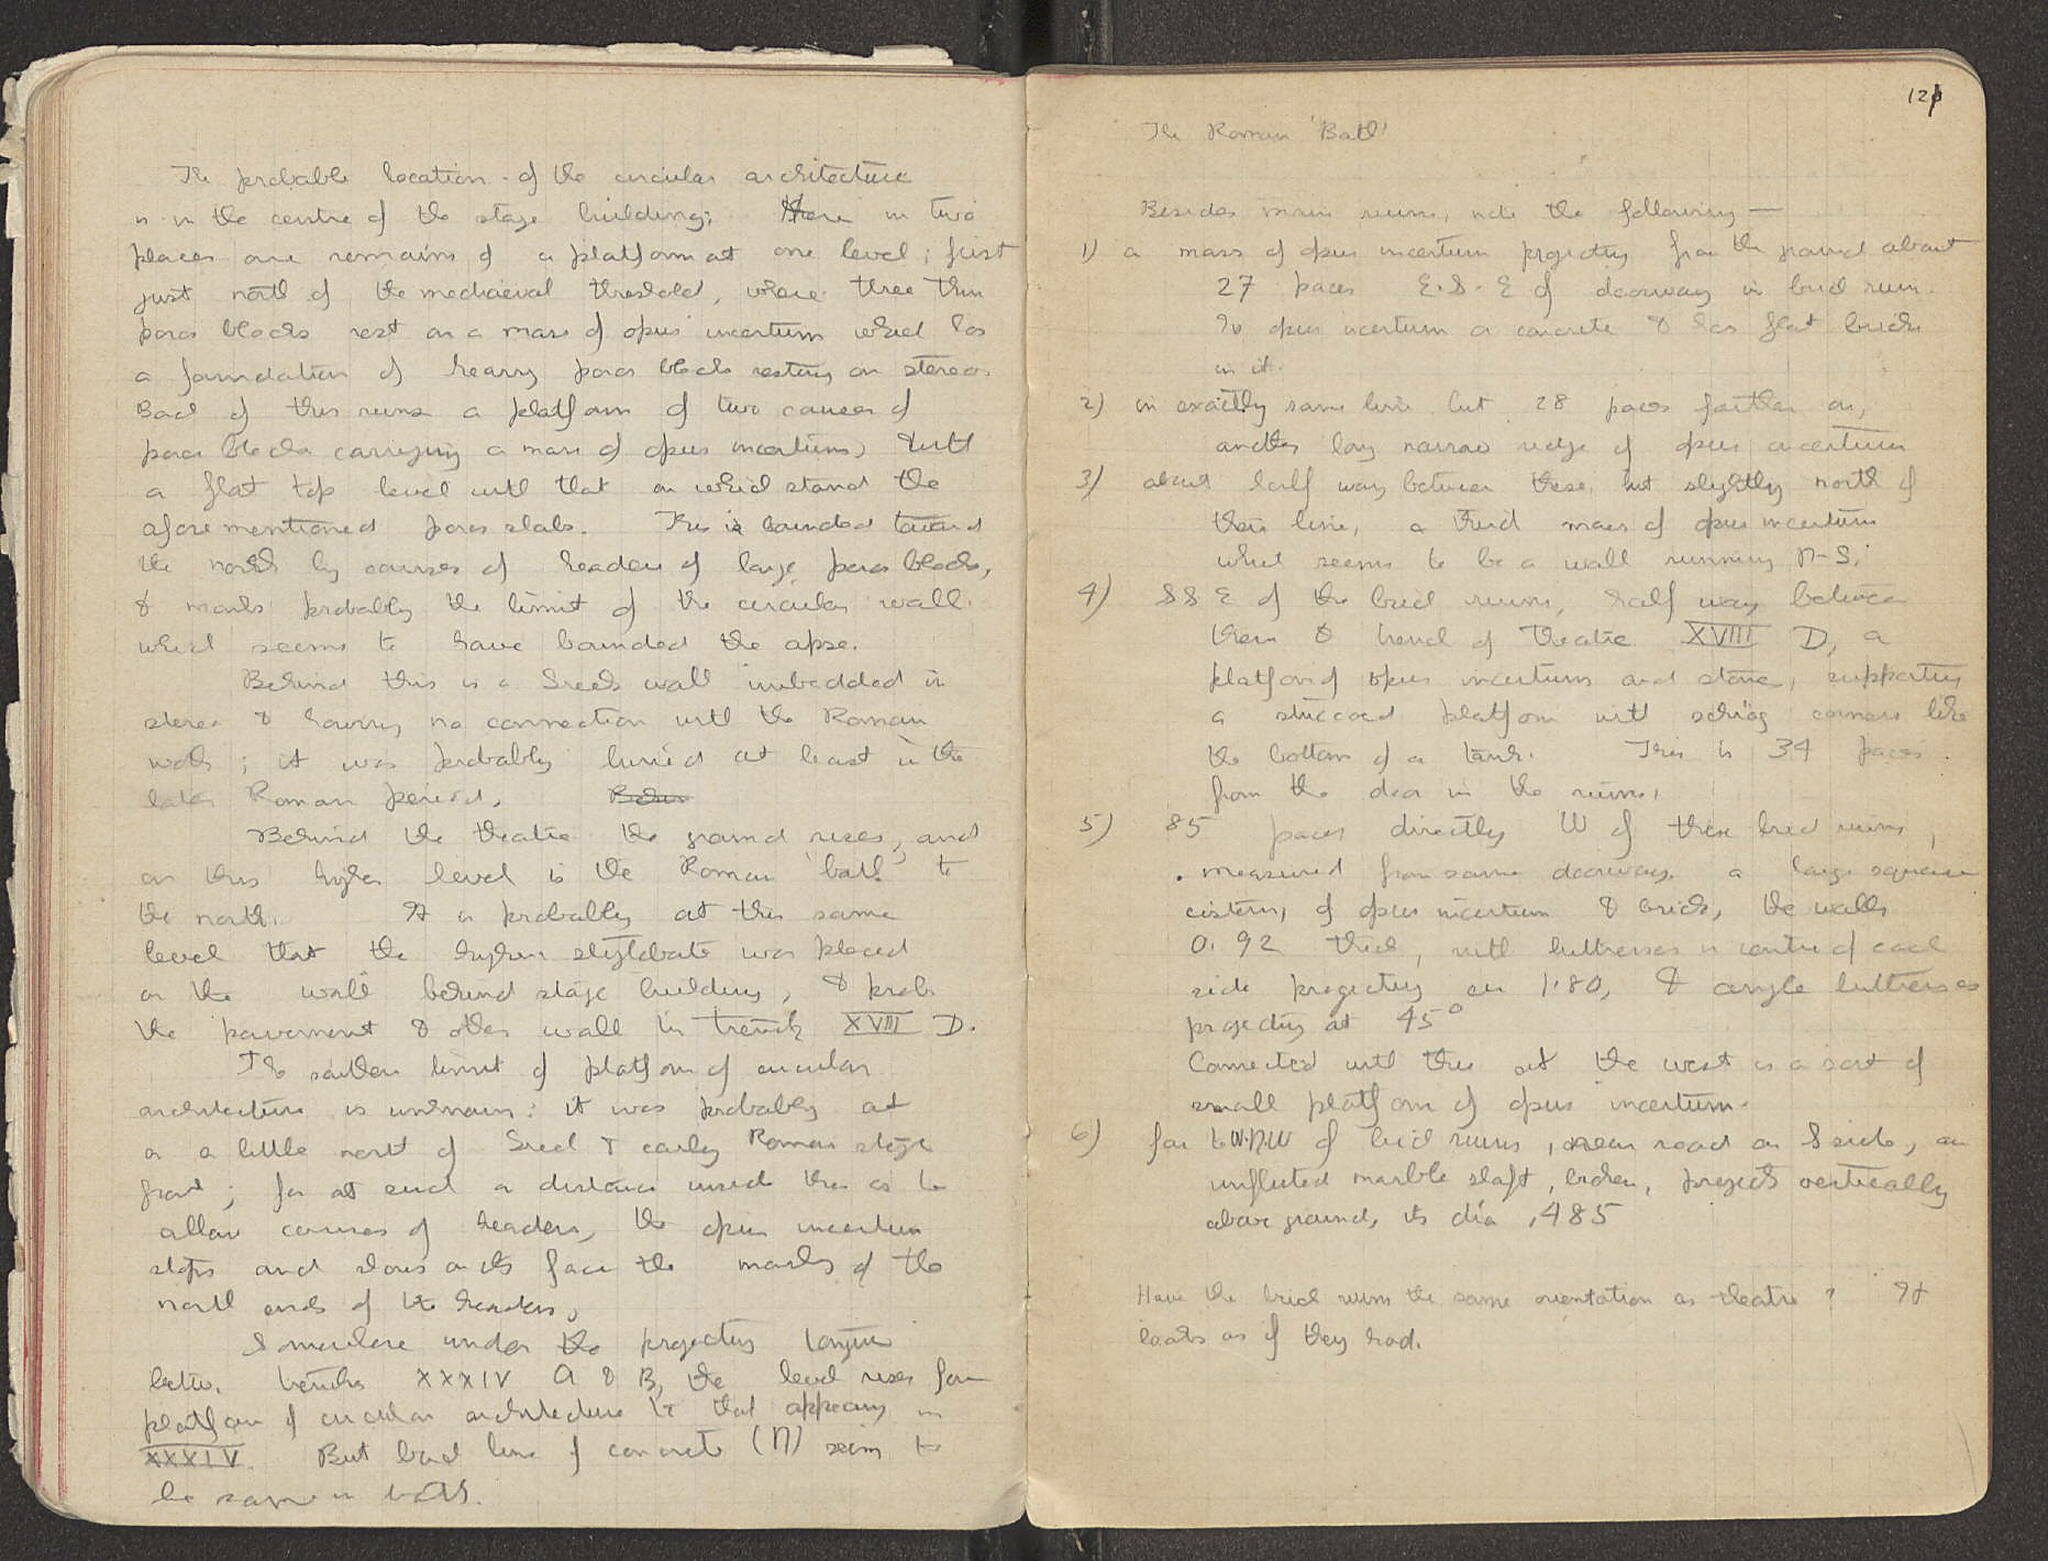 The probable location of the circular architecture
is in the centre of the stage building; there in two
places are remains of a platform at one level; first
just north of the mediaeval threshold, where three thin
poros blocks rest on a mass of opus incertum which has
a foundation of heavy poros blocks resting on stereo.
Back of this runs a platform of two courses of
poros blocks carrying a mass of opus incertum, with
a flat top level with that on which stand the
aforementioned poros slabs. This is bounded toward
the north by courses of headers of large poros blocks,
& marks probably the limit of the circular wall
which seems to have bounded the apse.
Behind this is a Greek wall imbedded in
stereo & having no connection with the Roman
walls; it was probably buried at least in the
later Roman period.
Behind the theatre the ground rises, and
on this higher level is the Roman 'bath' to
the north. It is probably at this same
level that the higher stylobate was placed
on the wall behind stage building, & prob.
the pavement & other wall in trench XVIII D.
The southern limit of platform of circular
architecture is unknown: it was probably at
or a little north of Greek & early Roman stage
front; for at such a distance inside this as to
allow courses of headers, the opus incertum
stops and shows on its face the marks of the
north ends of the headers.
Somewhere under the projecting tongue
betw. trenches XXXIV A & B, the level rises from
platform of circular architecture to that appearing in
XXXIV. But back line of concrete (N) seem to
be same in both.
121
The Roman 'Bath'
Besides main ruins, note the following —
1) a mass of opus incertum projecting from the ground about
27 paces E.S.E of doorway in brick ruin.
The opus incertum is concrete & has flat bricks
in it.
2) in exactly same line but 28 paces farther on,
another long narrow ridge of opus incertum
3) about half way between these, but slightly north of
their line, a third mass of opus incertum
what seems to be a wall running N-S.
4) SSE of the brick ruins, half way between
them & trench of theatre XVIII D, a
platform of opus incertum and stones, supporting
a stuccoed platform with corners like
the bottom of a tank. This is 34 paces
from the door in the ruins.
5) 85 paces directly W of these brick ruins,
measured from same doorway. a large square
cistern, of opus incertum & brick, the walls
0.92 thick, with buttresses in centre of each
side projecting on 1.80, & angle buttresses
projecting at 45°
Connected with this at the west is a sort of
small platform of opus incertum.
6) far to W.N.W of brick ruins, near road on S side, an
unfluted marble shaft, broken, projects vertically
above ground, its dia .485
Have the brick ruins the same orientation as theatre? It
looks as if they had.